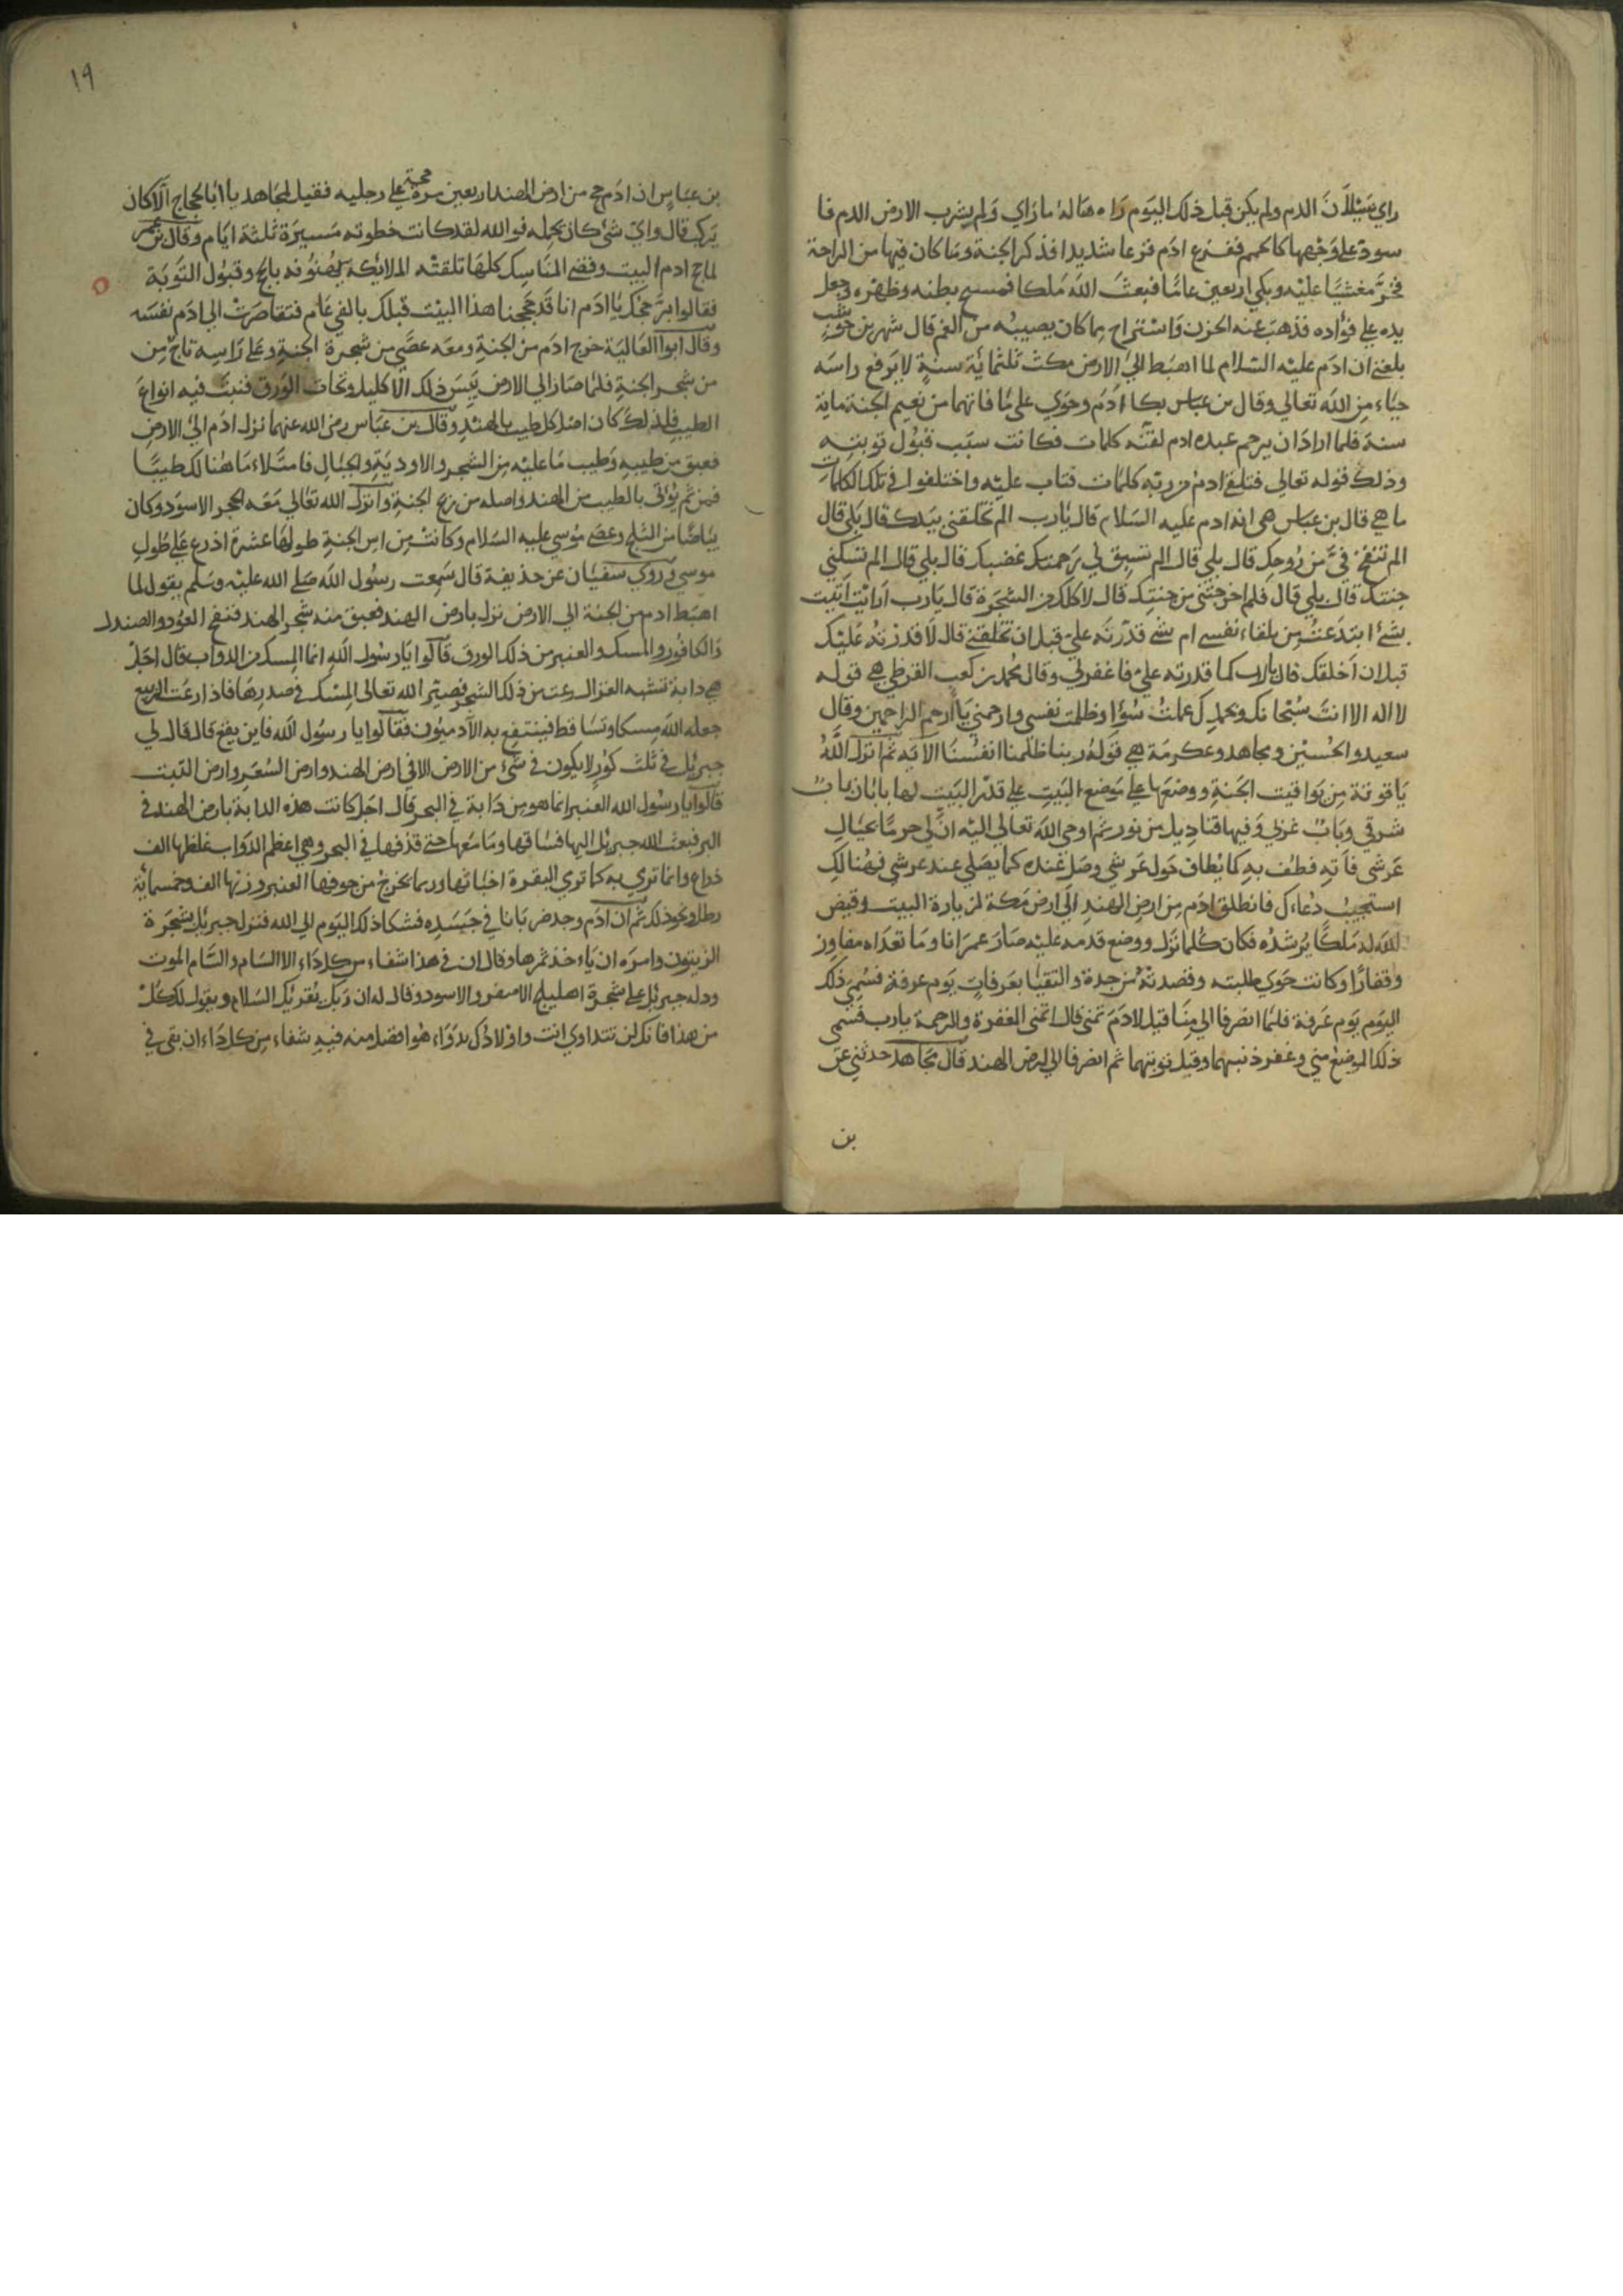 راي سَيَلاَنَ الدم ولم يكن قبل ذلك اليوم رَاه هَاله ما رَاي وَلم يشرب الارض الدم فا
سودّ على وَجْهها كالحمم ففزع ادَم فزعا شديدا فذكر الجنة وَمَا كان فيها من الراحة
فخرَّ مغشيًا عليْه وبكى اربعين عامًا فبعثَ اللهَ مَلكا فمسح بطنه وظهْره وَجعل
يده على فؤاده فذهبَ عنه الحزن وَاسْتراح مِما كان يصيبُه من الغم قال شهر بن حَوْشَب
بلغني ان ادَم عليْه السَلام لما اهبَط الي الارض مكث ثلثمايَة سنةٍ لا يَرفع راسَه
حيَاء مِن اللهَ تعالي وقال بن عبَاس بكا ادَم وحوي على مَا فاتهما من نعيم الجنة ماية
سنة فلما ارادَ ان يرحم عبده ادم لقنّه كلمات فكانت سبَب قبُول توبته
وذلك قوله تعالى فتلقى ادمُ من ربّه كلمات فتاب عليْه واختلفوا في تلك الكلمَات
ما هي قال بن عبَاس هى ان ادم عليه السَلام قال يَارب الم تخلقني بيَدك قال بَلى قال
الم تنفخ فيَّ من رُوحِك قال بلي قال الم تسبق لي رَحمتك غضبك قال بلي قال الم تسكني
جنتك قال بلي قال فلم اخرجتني من جنتِك قال لاَكلك من الشجَرة قال يَارب اَرايْت اَتيْت
بشئ ابتدَعتُه من تلقاء نفسي ام شئ قدّرْتَه علي قبل ان تخلقني قال لاَ قدرْتهُ عَليْك
قبل ان اَخلقك قال يارب كما قدرته علي فاغفر لي وقال محُمد بن كعب القرظي هي قوله
لا اله الا انتَ سُبْحانك وبحمدِك عملتُ سُؤا وظلمت نفسي وارحمني يَا اَرحم الراحمين وقال
سعيد والحُسين ومجاهد وعكرمَة هي قَولهُ ربنا ظلمنا انفسُنَا الاَيَه ثم انزل اللهُ
يَاقوتة مِن يَواقيت الجَنةِ ووضعَها على مَوضع البَيتِ على قدْر البَيت لها بابَان بابٌ
شرقي وَبَابٌ غربي وَفيها قنادِيل مِن نور ثم اوحي اللهَ تعالي اليْه انَّ لي حرمًا بحيَالِ
عَرشي فاَتِهِ فطف بهِ كما يُطاف حَول عَرشي وصَلِ عنده كما يصَلي عند عرشي فهُنالكِ
استجيبُ دُعاءك فانطلق ادَم مِن ارض الهندِ الي ارض مَكة لزيارة البيت وقيض
الله له مَلكًا يُرشدُه فكان كُلما نَزل ووضع قدمه عليْه صَارَ عمرَانا ومَا تعدَاه مفاوِز
وقفارًا وكانت حَوي طلبته وقصدتهُ من جدة والتقيَا بعَرفاتٍ يَوم عرفة فسُمِيَ ذلك
اليَوم يَوم عَرفة فلمَا انصَرفا الي مِنَا قيل لادَم تمنى قال اتمنى المغفرة والرحمة يارب فسُمى
ذلك الموضعُ مني وغفر ذنبهما وقبل توبتهما ثم انصرفا الي ارض الهند قال مجَاهد حدثني عن
بن
١٩
بن عبَاسٍ ان ادَم حج من ارض الهند اربعين حجة على رجليه فقيل لمجَاهد يا ابا الحجاج اَلاَ كان
يَركب قال وايّ شئ كان يحمله فوالله لقد كانت خطوته مَسيرَة ثلثة ايَام وقال بن عُمر
لما حج ادم البيت وقضى المنَاسِك كلهَا تلقتْه الملايكة يُهنوُنه بالحج وَقبُول التَوبَة
فقالوا بَرَّ حجك يَا ادَم انا قَد حَججنا هذا البيْت قبْلك بالفي عَام فتقاصَرتْ الي ادَم نفسَه
وقال ابوا العَاليَة خرج ادَم من الجنةِ ومعَه عصَّي من شجرة الجنةِ وعلى رَاسِه تاجٌ مِن
من شجر الجنةِ فلمَا صَار الي الارض يَبَسَ ذلك الاكليل وتحات الوَرق فنبتَ فيه انواعَ
الطيبِ فلذلك كان اصْل كل طيب بالهنْدِ وقال بن عبَاس رضى الله عنهما نزل ادَم الي الارضِ
فعبق من طيبهِ وَطيب مَا عليْه مِن الشجر والاوديَةِ والجبَالِ فامتَلاء مَا هُنالك طيبًا
فمن ثم يُؤتى بالطيب من الهند واصله من ريح الجنةِ وانزل الله تعَالي مَعَه الحجر الاسوَد وكان
بيَاضًا من الثلج وعصى مُوسي عليه السَلام وكانتْ مِن اس الجنةِ طولهَا عشرة اذرع عَلى طُولِ
موسي وروي سفيَان عن حذيفة قال سَمِعت رسُول اللهَ صَلي الله عليْه وسَلم يقول لما
اهبَط ادم من الجنة الي الارض نزل بارض الهند فعبق منه شجر الهند فنفح العوُد والصندل
وَالكافُور والمسك والعنبر من ذلك الورق قالوا يَارسُول اللهَ انما المِسك من الدوَاب قال اجَلْ
هي دابة تشبه الغزال رعت من ذلك الشجر فصيّر الله تعالى المِسْك في صدرِها فاذا رعَت الربيع
جعله اللهَ مِسكا وتسَاقط فينتفع به الآدميُون فقالوا يا رسُول اللهَ فاين يقع قال قال لي
جبريُل في ثلث كوَرٍ لا يكون في شئ من الارض الا في ارض الهند وارض السُغدِ وارض التبت
قالوا يا رسُول الله العنبر انما هو من دَابة في البحر قال اجَل كانت هذه الدابة بارض الهند في
البر فبعث الله جبريُل اليها فسَاقها ومَا مَعَها حتى قذفها في البحر وهي اعظم الدوَاب غلظها الف
ذراع وانما تري به كما تري البقرة اخثائها وربما يخرجُ من جوفها العنبر وزنها الف وخمسماية
رطل ونحو ذلك ثم ان ادَم وجد ضربَانا في جَسَدِه فشكا ذلك اليَوم الي الله فنزل جبريُل بشجَرة
الزيتون وامَره ان يَاءخذ ثمرها وقال ان في هذا شفاء من كل دَاء الا السَام والسَام الموت
ودله جبريُل على شجَرة اهليلج الاصفر والاسود وقال له ان ربك يُقريك السَلام ويقول لك كلْ
من هذا فانك لن تتداوي انت واولادك بدَوَاء هُوا فضل منه فيهِ شفاء مِن كل دَاء ان بقى في